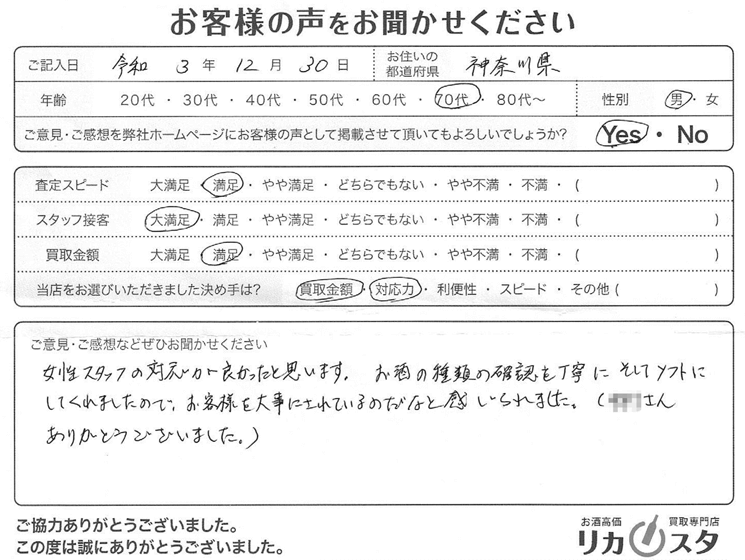 お客様の声をお聞かせください
ご記入日 令和 3 年 12 月 30 日 お住いの都道府県 神奈川県
年齢 20代 ・ 30代 ・ 40代 ・ 50代 ・ 60代 ・ 70代 ・ 80代〜 性別 男 ・ 女
ご意見・ご感想を弊社ホームページにお客様の声として掲載させて頂いてもよろしいでしょうか? Yes ・ No
査定スピード 大満足 ・ 満足 ・ やや満足 ・ どちらでもない ・ やや不満 ・ 不満 ・ ( )
スタッフ接客 大満足 ・ 満足 ・ やや満足 ・ どちらでもない ・ やや不満 ・ 不満 ・ ( )
買取金額 大満足 ・ 満足 ・ やや満足 ・ どちらでもない ・ やや不満 ・ 不満 ・ ( )
当店をお選びいただきました決め手は? 買取金額 ・ 対応力 ・ 利便性 ・ スピード ・ その他 ( )
ご意見・ご感想などぜひお聞かせください
女性スタッフの対応が良かったと思います。 お酒の種類の確認も丁寧に そしてソフトに
してくれましたので、お客様を大事にされているのだなと感じられました。( さん
ありがとうございました。)
ご協力ありがとうございました。
この度は誠にありがとうございました。
お酒高価 買取専門店
リカスタ